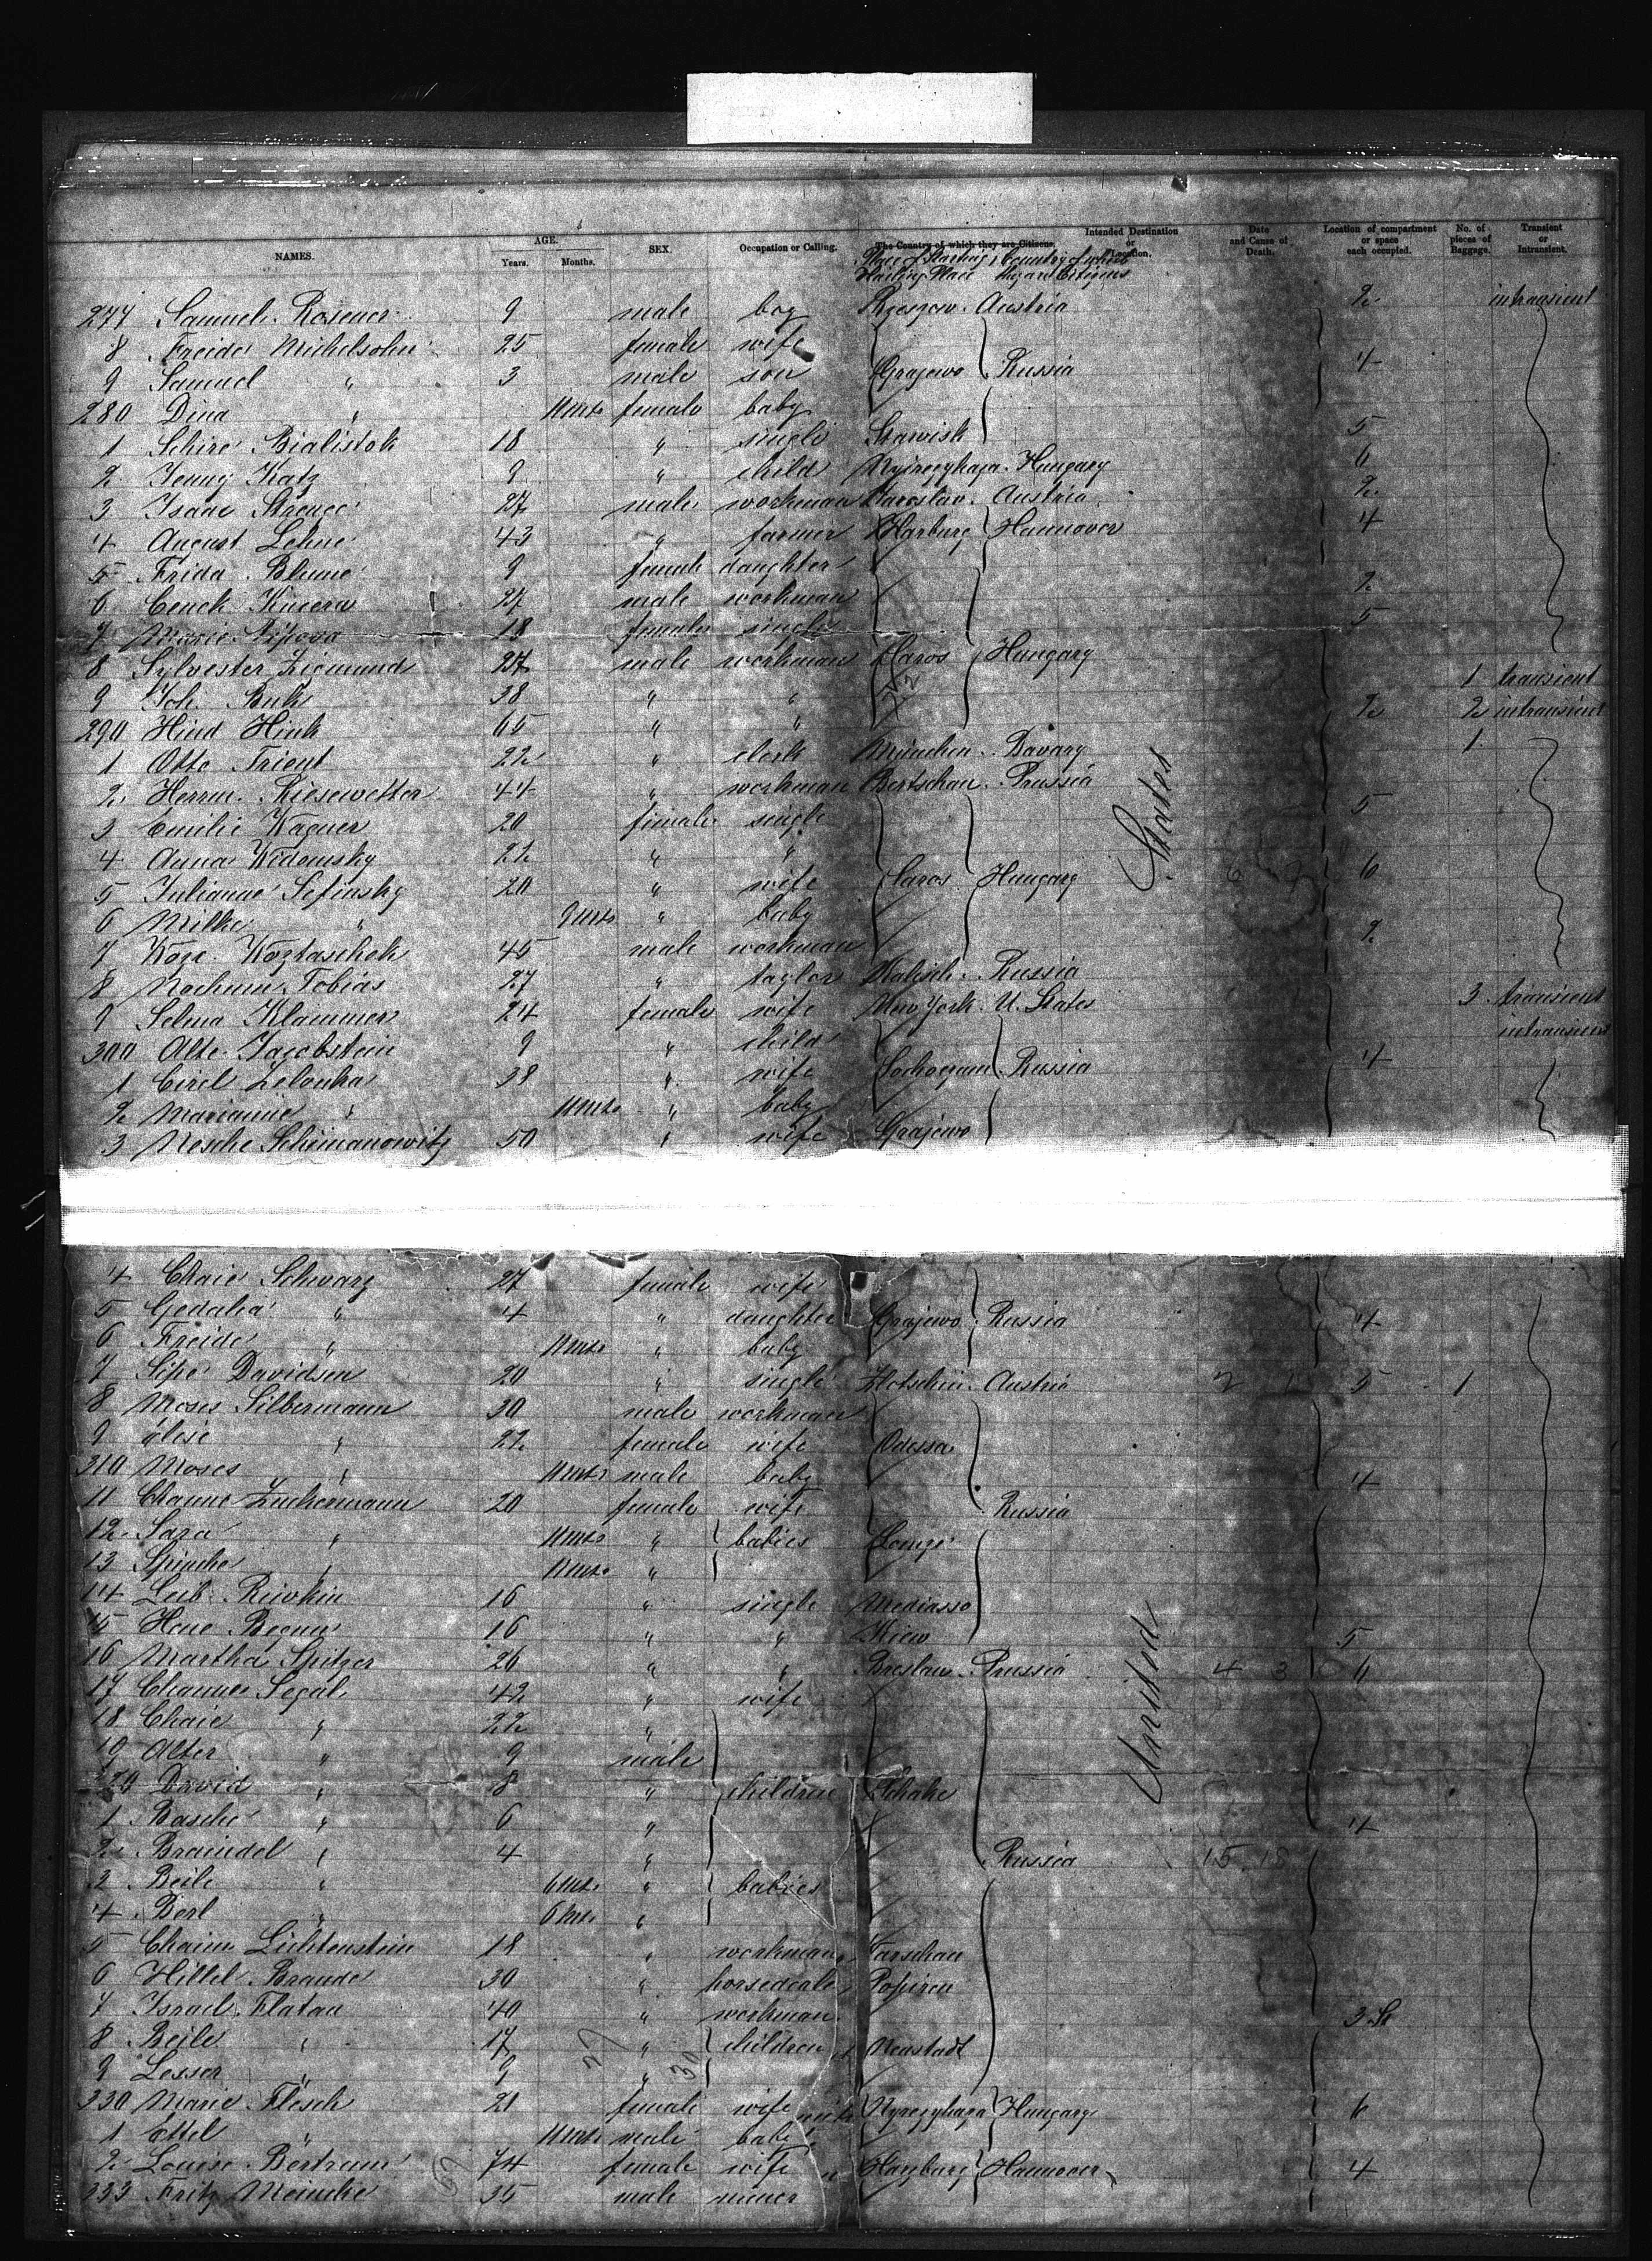 NAMES. AGE. Years. Months. SEX. Occupation or Calling. The Country of which they are Citizens. Intended Destination or Location. Date and Cause of Death. Location of compartment or space each occupied. No. of pieces of Baggage. Transient or Intransient.
Place of Starting, Country of which
Hailing Place they are Citizens
277 Samuel Rosener 9 male boy Austria 2 intransient
8 Freide Michelsohn 25 female wife
9 Samuel " 3 male son Grajewo Russia 4
280 Dina " 11 mts female baby
1 Schire Bialistok 18 " single Stawisk 5
2 Jenny Katz 9 " child Nyiregyhaza Hungary 6
3 Isaac 27 male workman Jaroslau Austria 2
4 August Lehne 43 " farmer Harburg Hannover 4
5 Frida Blume 9 female daughter
6 Cenek Kucera 27 male workman 2
7 Marie 18 female single 5
8 Sylvester Ziemund 27 male workman Saros Hungary
9 Joh. Buk 38 " " 1 transient
290 Hind Hink 65 " " 2 2 intransient
1 Otto Trient 22 " clerk München Bavary 1
2 Herrm. Kiesewetter 44 " workman Bertschau Prussia
3 Emilie Wagner 20 female single 5
4 Anna Widomsky 22 " "
5 Julianne Sefinsky 20 " wife Saros Hungary 6
6 Milke " 9 mts " baby
7 Koze Koztaschek 45 male workman 2
8 Nochum Tobias 27 " taylor Kalisch Russia
9 Selma Klammer 24 female wife New York U. States 3 transient
300 Alte Jacobstein 9 " child intransient
1 Cirel Zelonka 38 " wife Russia 4
2 Marianne " 11 mts " baby
3 Nesche Schimanowitz 50 " wife Grajewo
States
4 Chaie Schwarz 27 female wife
5 Gedalia " 4 " daughter Grajewo Russia 4
6 Freide " 11 mts " baby
7 Sipe Davidsen 20 " single Austria 5 1
8 Moses Silbermann 30 male workman
9 " 22 female wife Odessa
310 Moses " 11 mts male baby 4
11 Channe Zuckermann 20 female wife Russia
12 Sara " 11 mts " babies
13 " 11 mts "
14 Leib Riwkin 16 " single
15 16 " " Kiew 5
16 Martha Spitzer 26 " " Breslau Prussia 4 3 6
17 Channe Segal 42 " wife
18 Chaie " 22 "
19 Alter " 9 male
320 David " 8 " children Schake
1 Basche " 6 " 4
2 Braindel " 4 " Russia 15 18
3 Beile " 6 mts " babies
4 Berl " 6 mts "
5 Chaim Lichtenstein 18 " workman Warschau
6 Hillel Braude 30 " horsedealer
7 Israel Flatau 40 " workman 3 St
8 Beile " 17 " children Neustadt
9 Lesser " 9 "
330 Marie Flesch 21 female wife Nyregyhaza Hungary 6
1 Ettel " 11 mts male baby
2 Louise Bertram 74 female wife Harzburg Hannover 4
333 Fritz Meincke 35 male miner
United